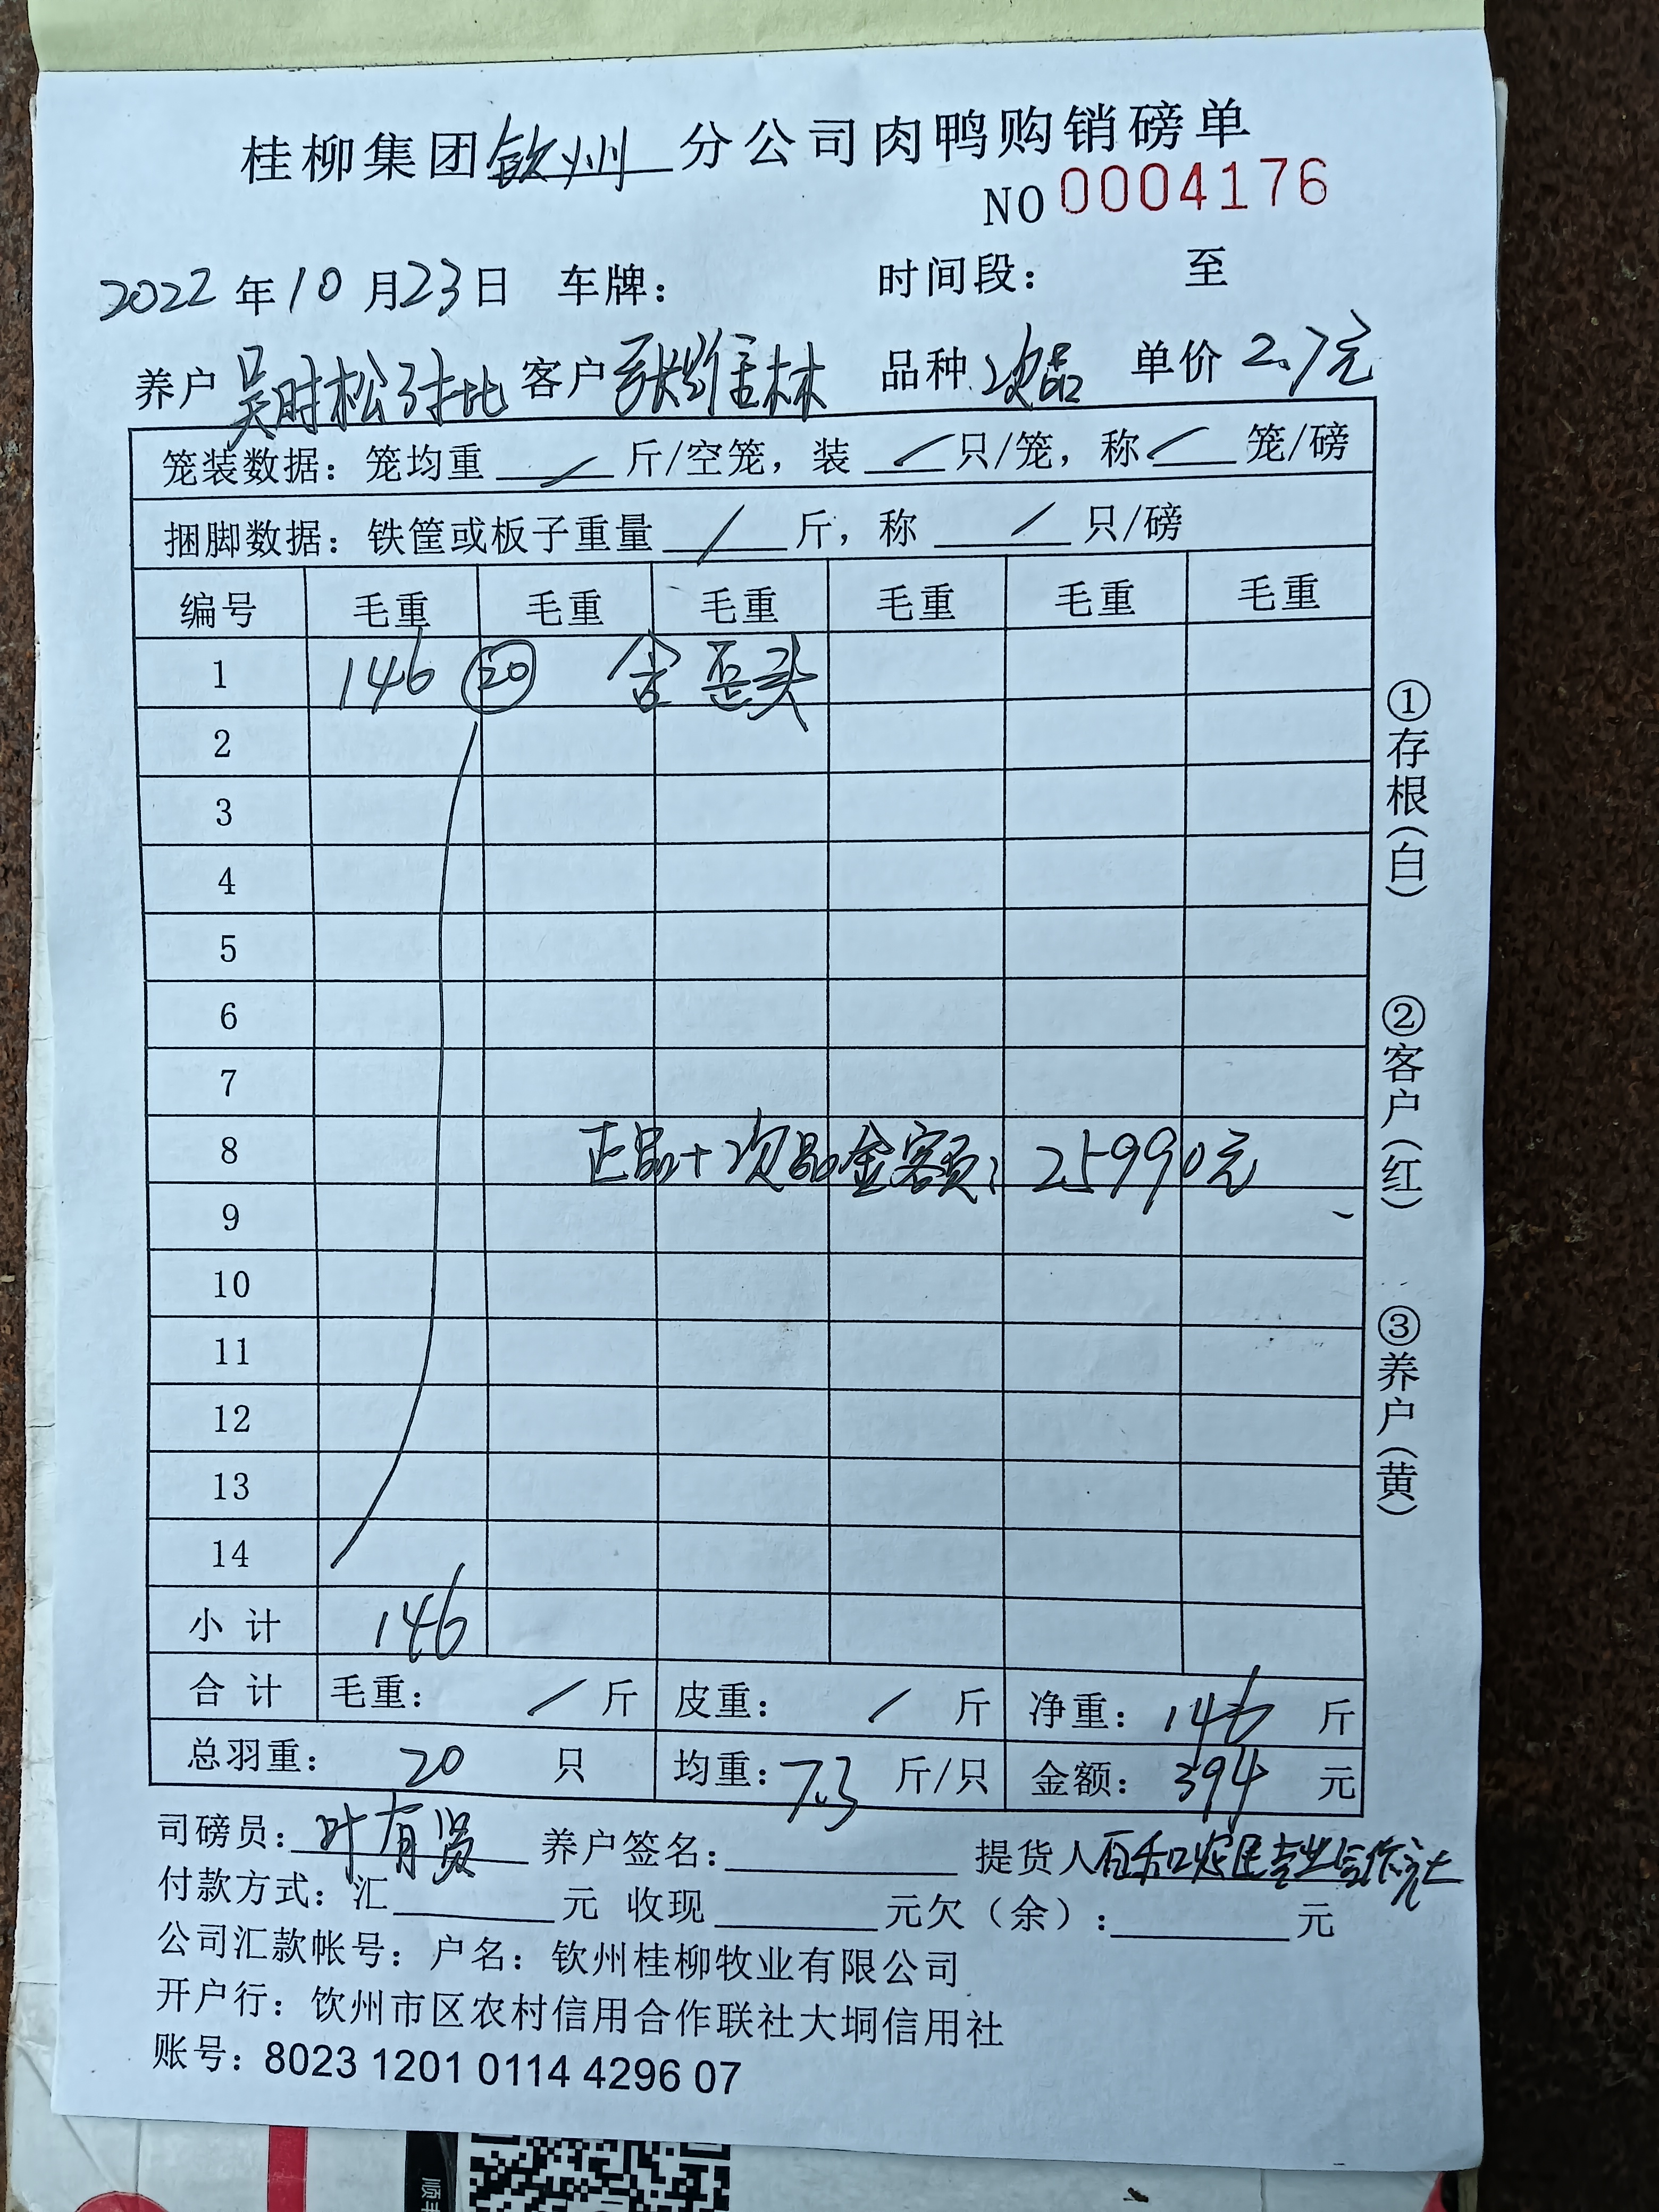 桂柳集团钦州分公司肉鸭购销磅单
NO 0004176
2022年10月23日 车牌： 时间段： 至
养户 吴时松对比 客户 张维林 品种 次品 单价 2.7元
笼装数据：笼均重 / 斤/空笼，装 / 只/笼，称 / 笼/磅
捆脚数据：铁筐或板子重量 / 斤，称 / 只/磅
编号 毛重 毛重 毛重 毛重 毛重 毛重
1 146 20 含歪头
2
3
4
5
6
7
8 正品+次品金额：25990元
9
10
11
12
13
14
小计 146
合计 毛重： / 斤 皮重： / 斤 净重：146 斤
总羽重：20 只 均重：7.3 斤/只 金额：394 元
司磅员：叶有贤 养户签名： 提货人 百和农民专业合作社
付款方式：汇 元 收现 元欠（余）： 元
公司汇款帐号：户名：钦州桂柳牧业有限公司
开户行：钦州市区农村信用合作联社大垌信用社
账号：8023 1201 0114 4296 07
①存根（白）
②客户（红）
③养户（黄）